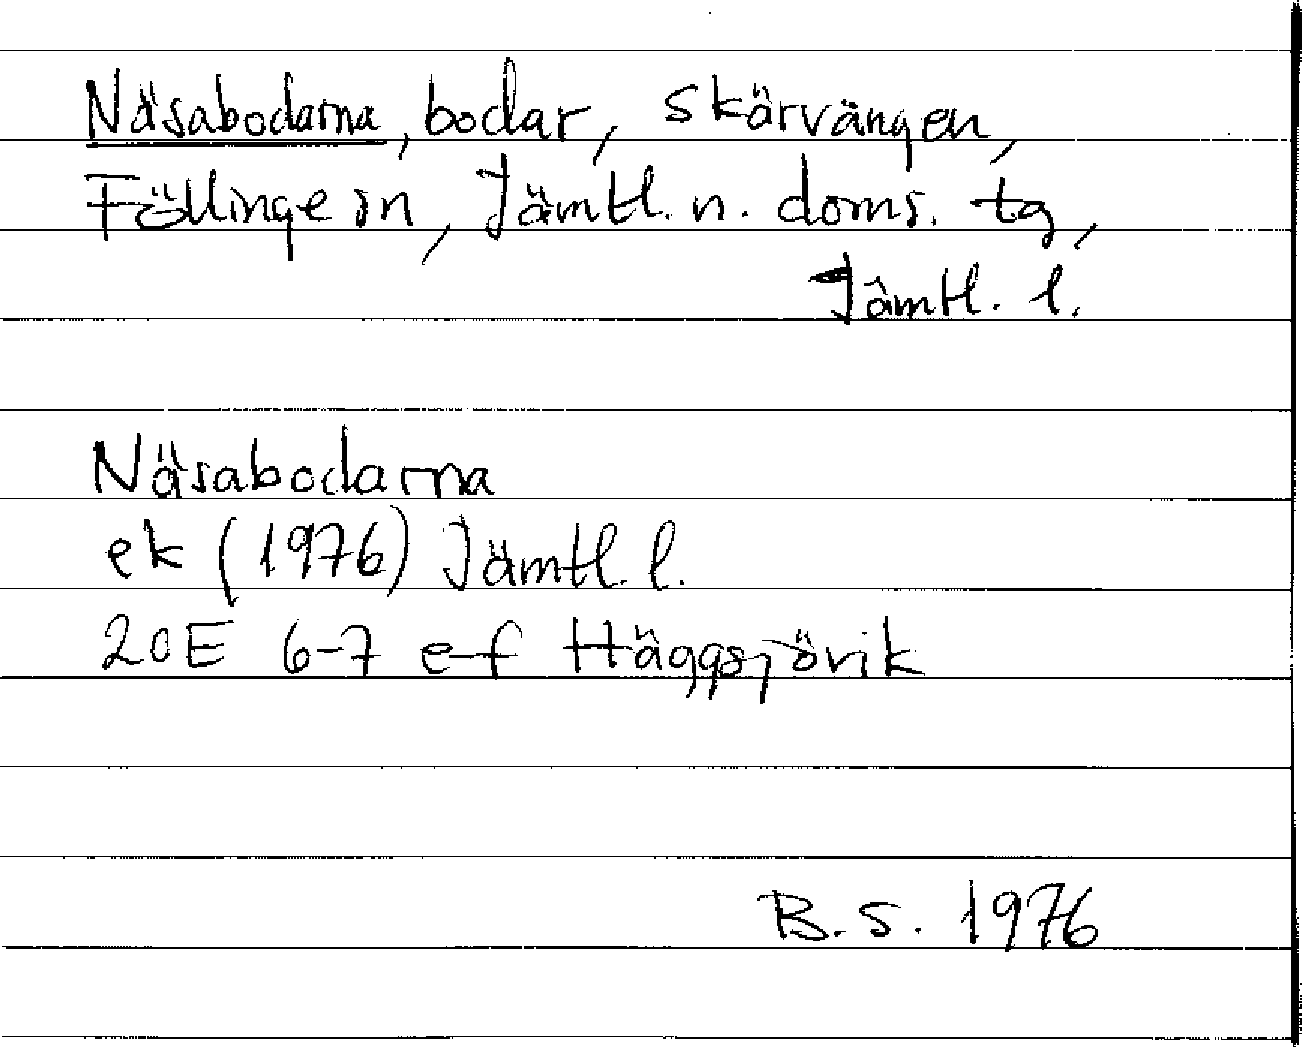 Näsabodarna, bodar, Skärvången,
Föllinge sn, Jämtl. n. doms. tg,
Jämtl. l.
Näsabodarna
ek (1976) Jämtl. l.
20E 6-7 e-f Häggsjövik
B.S. 1976